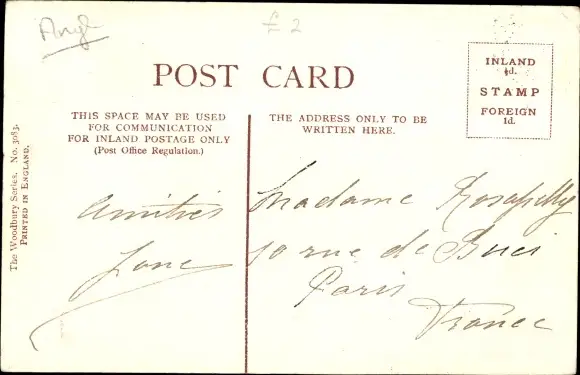 Angl
£ 2
POST CARD
INLAND
½d.
STAMP
FOREIGN
1d.
THIS SPACE MAY BE USED
FOR COMMUNICATION
FOR INLAND POSTAGE ONLY
(Post Office Regulation.)
THE ADDRESS ONLY TO BE
WRITTEN HERE.
The Woodbury Series. No. 3083.
PRINTED IN ENGLAND.
Amitiés
Jane
Madame Rosapelly
10 rue de Buci
Paris
France